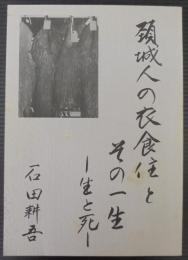 頸城人の衣食住と
その一生
ー生と死ー
石田耕吾